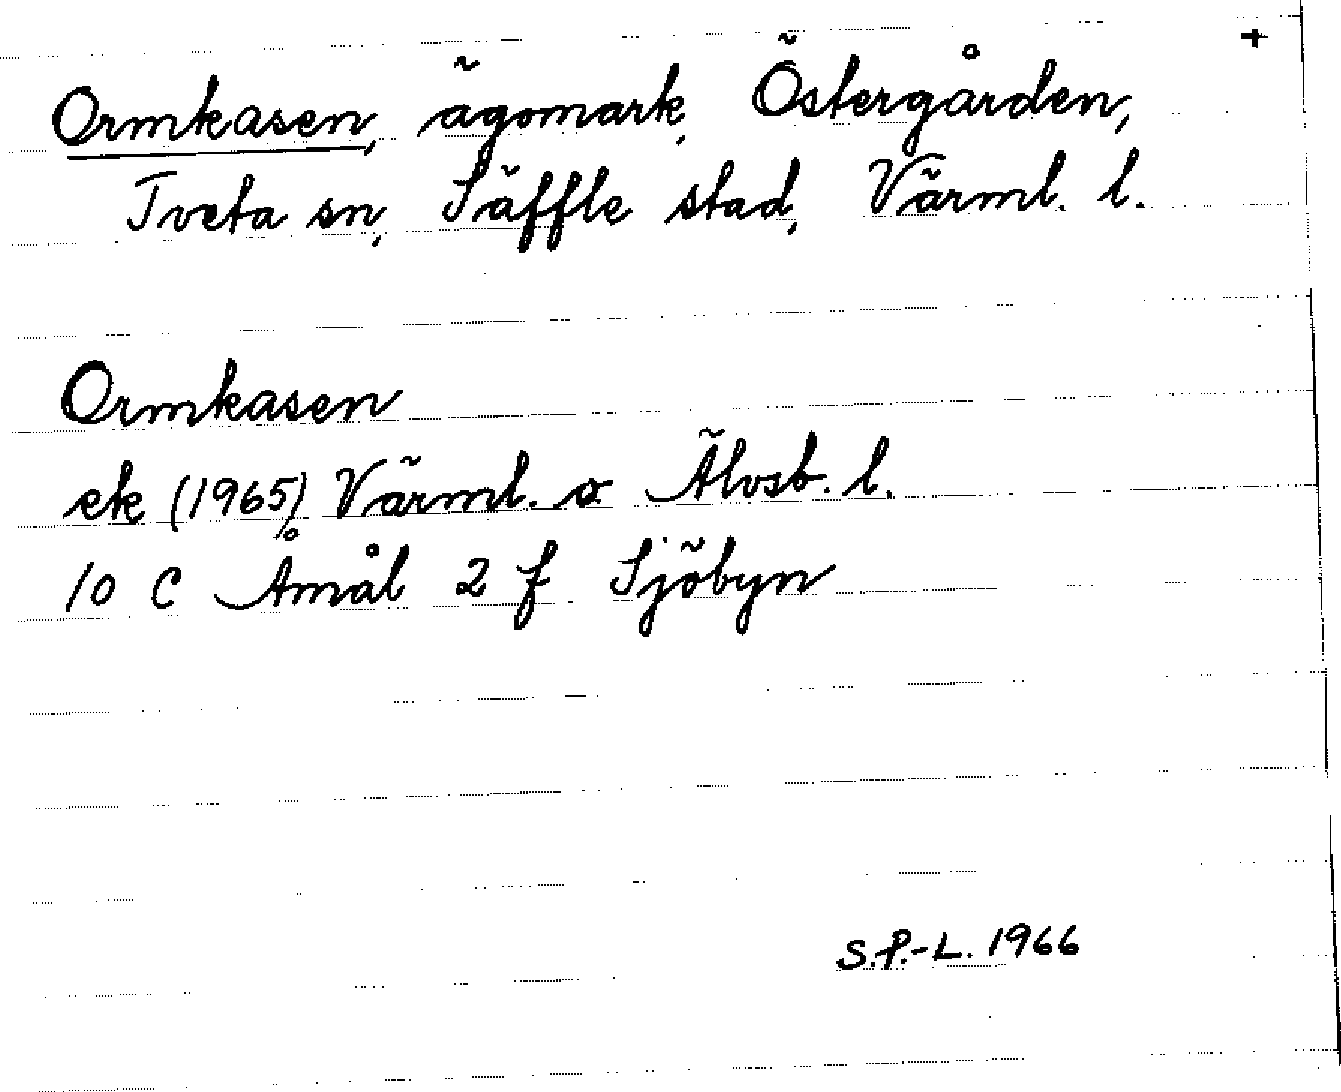 +
Ormkasen, ägomark, Östergården,
Tveta sn, Säffle stad, Värml. l.
Ormkasen
ek (1965) Värml. o. Älvsb. l.
10 C Åmål 2 f Sjöbyn
S.P.-L. 1966